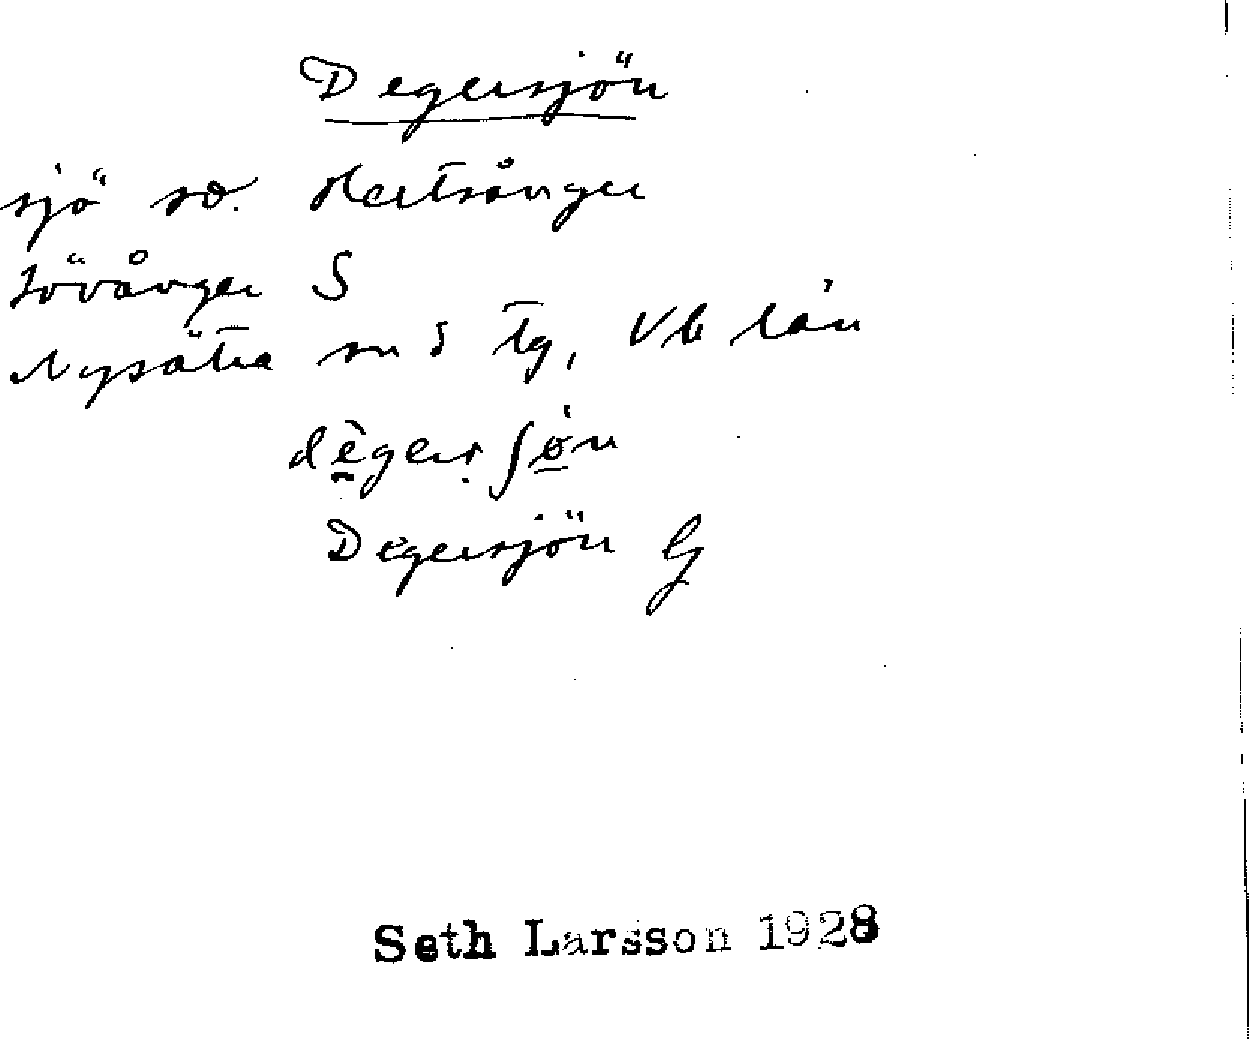 Degersjön
sjö sv. Hertsånger
Lövånger S
Nysätra sn o tg, Vb län
dègerṣ ʃø̀n
Degersjön G
Seth Larsson 1928